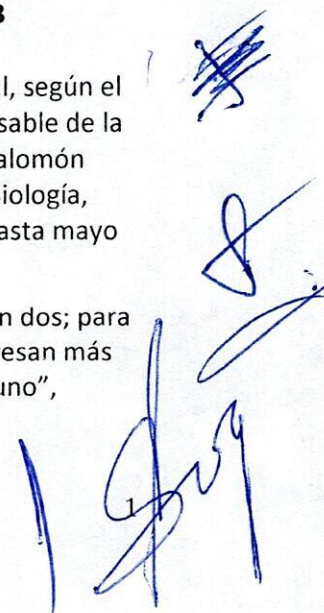 3
l, según el
sable de la
alomón
iología,
asta mayo
n dos; para
resan más
uno”,
1